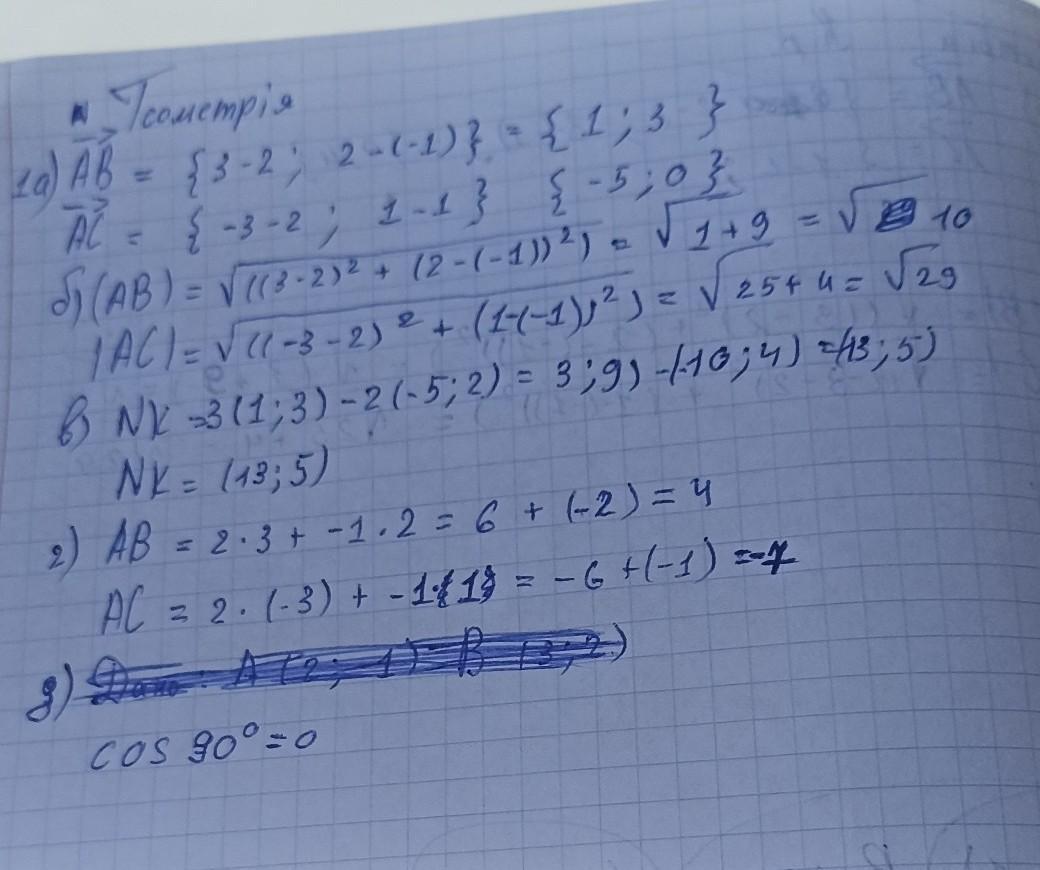 Геометрія
1а) AB = {3-2; 2-(-1)} = {1; 3}
AC = {-3-2; 1-1} {-5; 0}
б) (AB) = √((3-2)² + (2-(-1))²) = √1+9 = √10
|AC| = √((-3-2)² + (1-(-1))²) = √25+4 = √29
в) NK = 3(1; 3) - 2(-5; 2) = 3; 9) - (-10; 4) = (13; 5)
NK = (13; 5)
г) AB = 2·3 + -1·2 = 6 + (-2) = 4
AC = 2·(-3) + -1·(1) = -6 + (-1) = -7
д) Дано: A (2; -1) B (3; 2)
cos 90° = 0